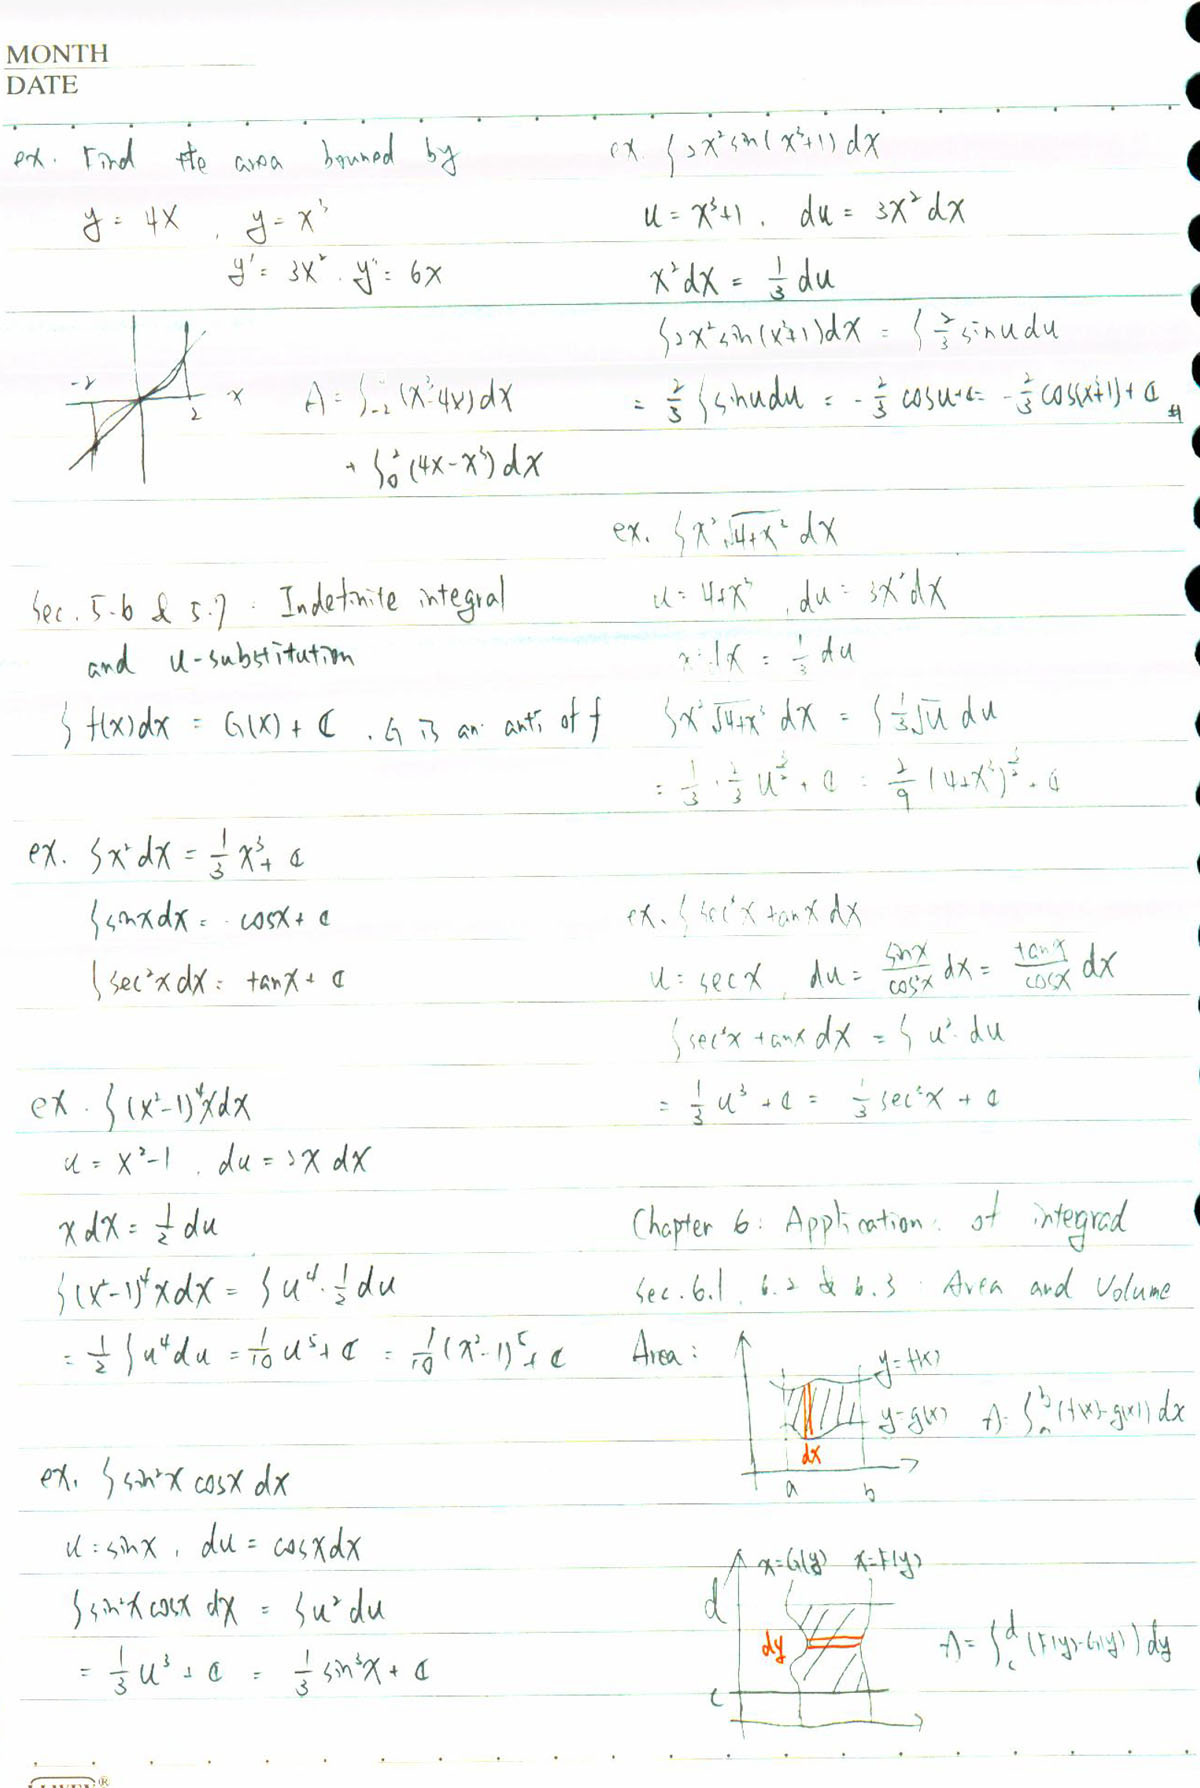 MONTH
DATE
ex. Find the area bouned by
y = 4x , y = x³
y' = 3x² . y'' = 6x
-2
2
x
A = ∫₋₂⁰ (x³-4x)dx
+ ∫₀² (4x-x³)dx
Sec. 5.6 & 5.7 : Indefinite integral
and u-substitution
∫ f(x)dx = G(x) + C . G is an anti. of f
ex. ∫x² dx = 1/3 x³ + C
∫sinx dx = -cosx + C
∫sec²x dx = tanx + C
ex. ∫(x²-1)⁴xdx
u = x²-1 , du = 2x dx
x dx = 1/2 du
∫(x²-1)⁴xdx = ∫u⁴·1/2 du
= 1/2 ∫u⁴du = 1/10 u⁵ + C = 1/10 (x²-1)⁵ + C
ex. ∫sin²x cosx dx
u = sinx , du = cosxdx
∫sin²x cosx dx = ∫u² du
= 1/3 u³ + C = 1/3 sin³x + C
ex. ∫2x² sin(x³+1) dx
u = x³+1 , du = 3x² dx
x² dx = 1/3 du
∫2x² sin(x³+1)dx = ∫ 2/3 sinu du
= 2/3 ∫sinudu = -2/3 cosu+C = -2/3 cos(x³+1) + C #
ex. ∫x² √4+x² dx
u = 4+x³ , du = 3x² dx
x² dx = 1/3 du
∫x² √4+x³ dx = ∫ 1/3 √u du
= 1/3 · 2/3 u^3/2 + C = 2/9 (4+x³)^3/2 + C
ex. ∫sec³x tanx dx
u = secx , du = sinx/cos²x dx = tanx/cosx dx
∫sec³x tanx dx = ∫ u² du
= 1/3 u³ + C = 1/3 sec³x + C
Chapter 6 : Applications of integrad
Sec. 6.1 , 6.2 & 6.3 : Area and Volume
Area :
y = f(x)
y = g(x)
A = ∫ₐᵇ (f(x)-g(x)) dx
dx
a
b
x=G(y) x=F(y)
d
dy
A = ∫_c^d (F(y)-G(y)) dy
c
®